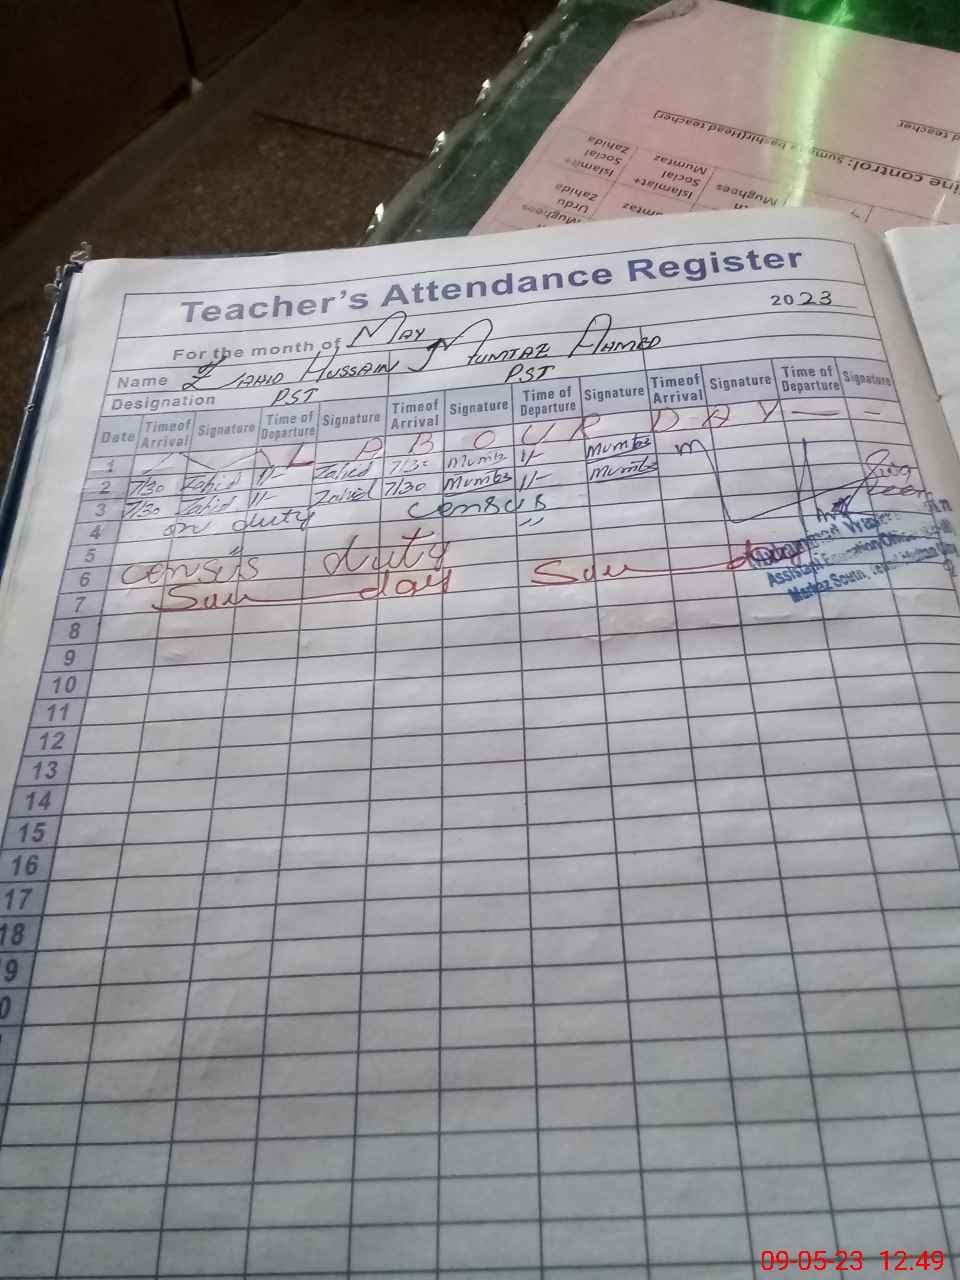 Teacher's Attendance Register
2023
For the month of MAY
Name ZAHID HUSSAIN MUMTAZ AHMED
Designation PST PST
Date Time of Arrival Signature Time of Departure Signature Time of Arrival Signature Time of Departure Signature Time of Arrival Signature Time of Departure Signature
1 L A B O U R D A Y
2 7/30 Zahid 11- Zahid 7/30 Mumtaz 11- Mumtaz
3 7/30 Zahid 11- Zahid 7/30 Mumtaz 11- Mumtaz
4 on duty census
5 "
6 census duty
7 Sun day Sun day
Assistant Education Officer
Markaz South,
8
9
10
11
12
13
14
15
16
17
18
9
0
ine control: (Head teacher)
d teacher
Islamiat+ Social Zahida
Islamiat+ Social Mumtaz
Urdu Zahida
Mughees
umtaz
Mughees
09-05-23 12.49